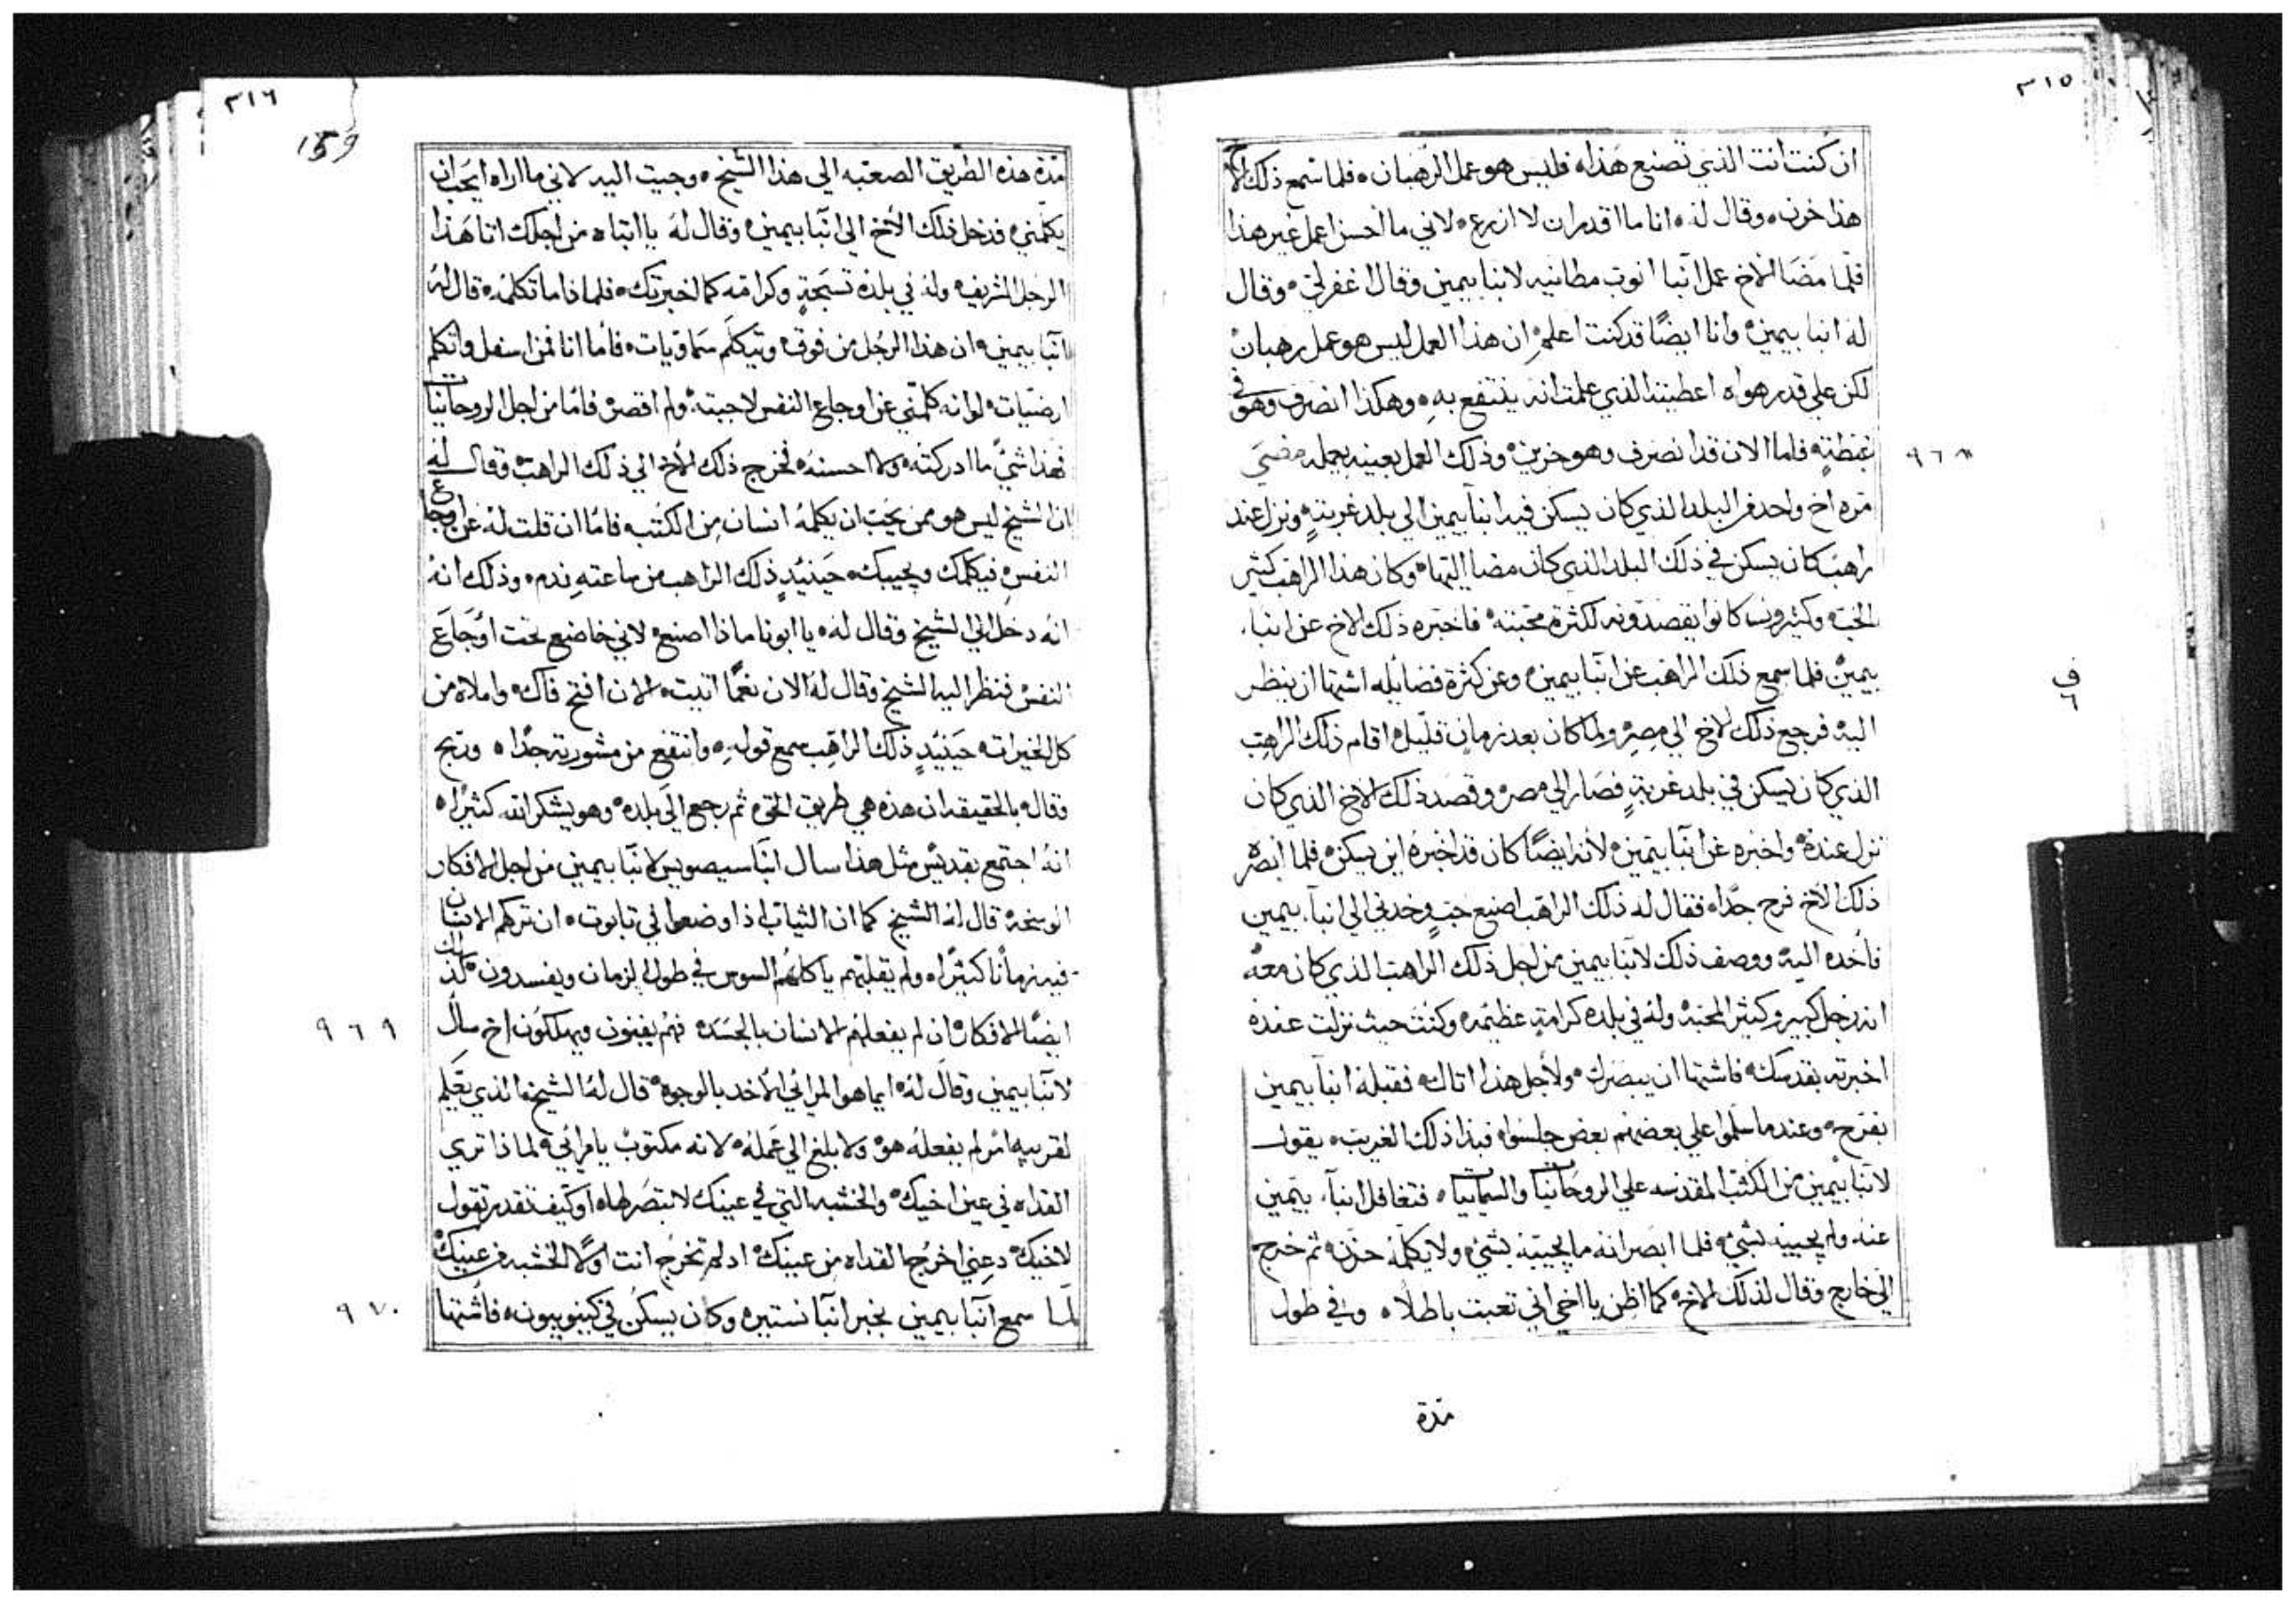 ٣١٥
ان كنت انت الذي تصنع هذا، فليس هو عمل الرهبان، فلما سمع ذلك الاخ
هذا حزن، وقال له، انا ما اقدر ان لا ازرع، لاني ما احسن اعمل غير هذا
فلما مضا الاخ عمل انبا انوب مطانيه لانبا بيمين وقال اغفر لي، وقال
له انبا بيمين، وانا ايضًا قد كنت اعلم، ان هذا العمل ليس هو عمل رهبان
لكن على قدر هواه اعطيته الذي علمت انه ينتفع به، وهكذا انصرف وهو في
غبطة، فاما الان قد انصرف وهو حزين، وذلك العمل بعينه يعمله، مضي
٩٦٨
مره اخ واحد من البلد الذي كان يسكن فيه انبا بيمين الي بلد غريبة، ونزل عند
راهب كان يسكن في ذلك البلد الذي كان مضا اليها، وكان هذا الراهب كثير
المحبه وكثيرون كانوا يقصدونه لكثرة محبته، فاخبره ذلك الاخ عن انبا
بيمين، فلما سمع ذلك الراهب عن انبا بيمين، وعن كثرة فضايله اشتها ان ينظر
ف
٦
اليه، فرجع ذلك الاخ الي مصر، ولما كان بعد زمان قليل، اقام ذلك الراهب
الذي كان يسكن في بلد غريبة، فصار الي مصر، وقصد ذلك الاخ الذي كان
نزل عنده، واخبره عن انبا بيمين، لانه ايضًا كان قد اخبره اين يسكن، فلما ابصره
ذلك الاخ فرح جدًا، فقال له ذلك الراهب اصنع حب وخدني الي انبا بيمين
فاخده اليه، ووصف ذلك لانبا بيمين من اجل ذلك الراهب الذي كان معه
انه رجل كبير وكثير المحبه، وله في بلده كرامة عظيمه، وكنت حيث نزلت عنده
اخبرته بقدسك، فاشتها ان يبصرك، ولاجل هذا اتاك، فقبله انبا بيمين
بفرح، وعندما سلموا علي بعضهم بعض جلسوا، فبدا ذلك الغريب، يقول
لانبا بيمين من الكتب المقدسه علي الروحانيات والسماييات، فتغافل انبا بيمين
عنه ولم يجيبه بشي، فلما ابصر انه ما يجيبه بشي، ولا يكلمه حزن، ثم خرج
الي خارج وقال لذلك الاخ، كما اظن يا اخي اني تعبت باطلًا، وفي طول
مدة
٣١٦
159
مدة هذه الطريق الصعبه الي هذا الشيخ، وجيت اليه لاني ما اراه يجب ان
يكلمني، فدخل ذلك الاخ الي انبا بيمين، وقال له يا ابتاه، من اجلك اتا هذا
الرجل الشريف، وله في بلده تسبحة وكرامه كما اخبرتك، فلماذا ما تكلمه، قال له
انبا بيمين، ان هذا الرجل من فوق، ويتكلم سماويات، فاما انا فمن اسفل واتكلم
ارضيات، لو انه كلمني عن اوجاع النفس لاجبته، ولم اقصر، فاما من اجل الروحانيات
فهذا شي ما ادركته، ولا احسنه، فخرج ذلك الاخ الي ذلك الراهب، وقال له
ان الشيخ ليس هو ممن يحب ان يكلمه انسان من الكتب، فاما ان قلت له عن اوجاع
النفس، فيكلمك ويجيبك، حينيد ذلك الراهب من ساعته ندم، وذلك انه
انه دخل الي الشيخ وقال له، يا ابونا ماذا اصنع، لاني خاضع تحت اوجاع
النفس، فنظر اليه الشيخ وقال له الان نعمًا اتيت، الان افتح فاك، واملاه من
كل الخيرات، حينيد ذلك الراهب سمع قوله، وانتفع من مشورته جدًا، وربح
وقال، بالحقيقه ان هذه هي طريق الحق، ثم رجع الي بلده، وهو يشكر الله كثيرًا،
انه اجتمع بقديس مثل هذا سال انبا سيصويس لانبا بيمين من اجل الافكار
الوسخه، قال له الشيخ كما ان الثياب اذا وضعوا في تابوت، ان تركهم الانسان
فيه زمانًا كثيرًا، ولم يقلبهم ياكلهم السوس في طول الزمان ويفسدون، كذلك
ايضًا الافكار، ان لم يفعلهم الانسان بالجسد، فهم يفنون ويهلكون، اخ سال
٩٦٩
لانبا بيمين وقال له، ايما هو المرائي الاخد بالوجوه، قال له الشيخ، الذي يعلم
لقريبه امر لم يفعله هو، ولا بلغ الي عمله، لانه مكتوب يا مرائي، لماذا تري
القداه في عين اخيك، والخشبه التي في عينك لا تبصرها، او كيف تقدر تقول
لاخيك، دعني اخرج القداه من عينك، اد لم تخرج انت اولًا الخشبه من عينيك
لما سمع انبا بيمين بخبر انبا نستيره، وكان يسكن في كينوبيون، فاشتها
٩٧٠